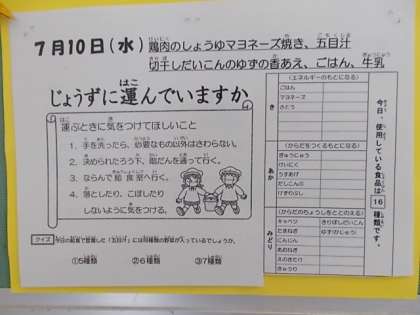 7月10日(水) 鶏肉のしょうゆマヨネーズ焼き、五目汁
切干しだいこんのゆずの香あえ、ごはん、牛乳
じょうずに運んでいますか
運ぶときに気をつけてほしいこと
1. 手を洗ったら、必要なもの以外はさわらない。
2. 決められたろう下、階だんを通って行く。
3. ならんで給食室へ行く。
4. 落としたり、こぼしたり
しないように気をつける。
クイズ
今日の給食で登場した「五目汁」には何種類の野菜が入っているでしょうか。
①5種類 ②6種類 ③7種類
き
(エネルギーのもとになる)
ごはん
マヨネーズ
さとう
あか
(からだをつくるもとになる)
ぎゅうにゅう
けいにく
うすあげ
だしこんぶ
けずりぶし
みどり
(からだのちょうしをととのえる)
キャベツ きりぼしだいこん
たまねぎ ゆず(かじゅう)
にんじん
あおねぎ
えのきたけ
きゅうり
今日、使用している食品は
16
種類です。